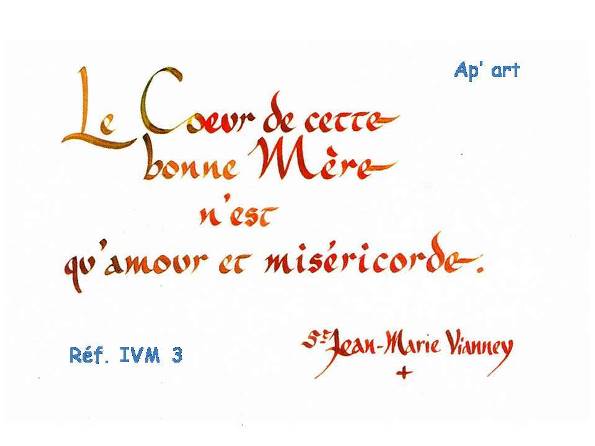 Ap' art
Le Coeur de cette
bonne Mère
n'est
qu'amour et miséricorde.
Réf. IVM 3
St Jean-Marie Vianney